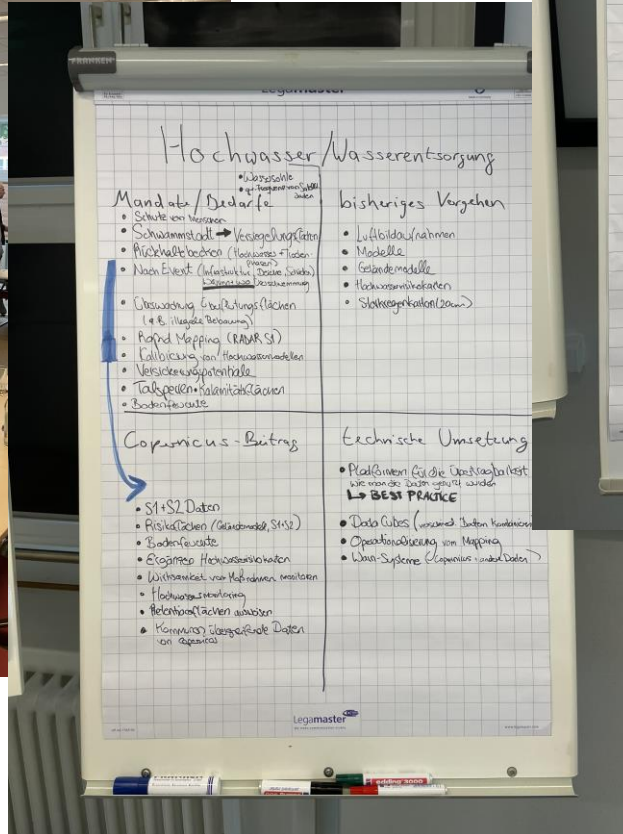 FRANKEN
Legamaster
Hochwasser/Wasserentsorgung
• Wassersohle
Mandate/Bedarfe
• Schutz von Menschen
• Schwammstadt → Versiegelungsdaten
• Rückhaltebecken (Hochwasser + Trocken
phasen)
• Nach Event (Infrastruktur, Deiche, Schäden)
• Überwachung Überflutungsflächen
(z.B. illegale Bebauung)
• Rapid Mapping (RADAR S1)
• Kalibrierung von Hochwassermodellen
• Versickerungspotentiale
• Talsperren • Kalamitätsflächen
• Bodenfeuchte
bisheriges Vorgehen
• Luftbildaufnahmen
• Modelle
• Geländemodelle
• Hochwasserrisikokarten
• Starkregenkarten (20cm)
Copernicus-Beitrag
• S1+S2 Daten
• Risikoflächen (Geländemodell, S1+S2)
• Bodenfeuchte
• Ergänzen Hochwasserrisikokarten
• Wirksamkeit von Maßnahmen monitoren
• Hochwassermonitoring
• Retentionsflächen ausweisen
• Kommunen übergreifende Daten
von Copernicus
technische Umsetzung
• Plattformen für die Übertragbarkeit
wie man die Daten genutzt wurden
↳ BEST PRACTICE
• Data Cubes ( Daten kombinieren
• Operationalisierung vom Mapping
• Warn-Systeme (Copernicus + andere Daten)
Legamaster
edding 3000